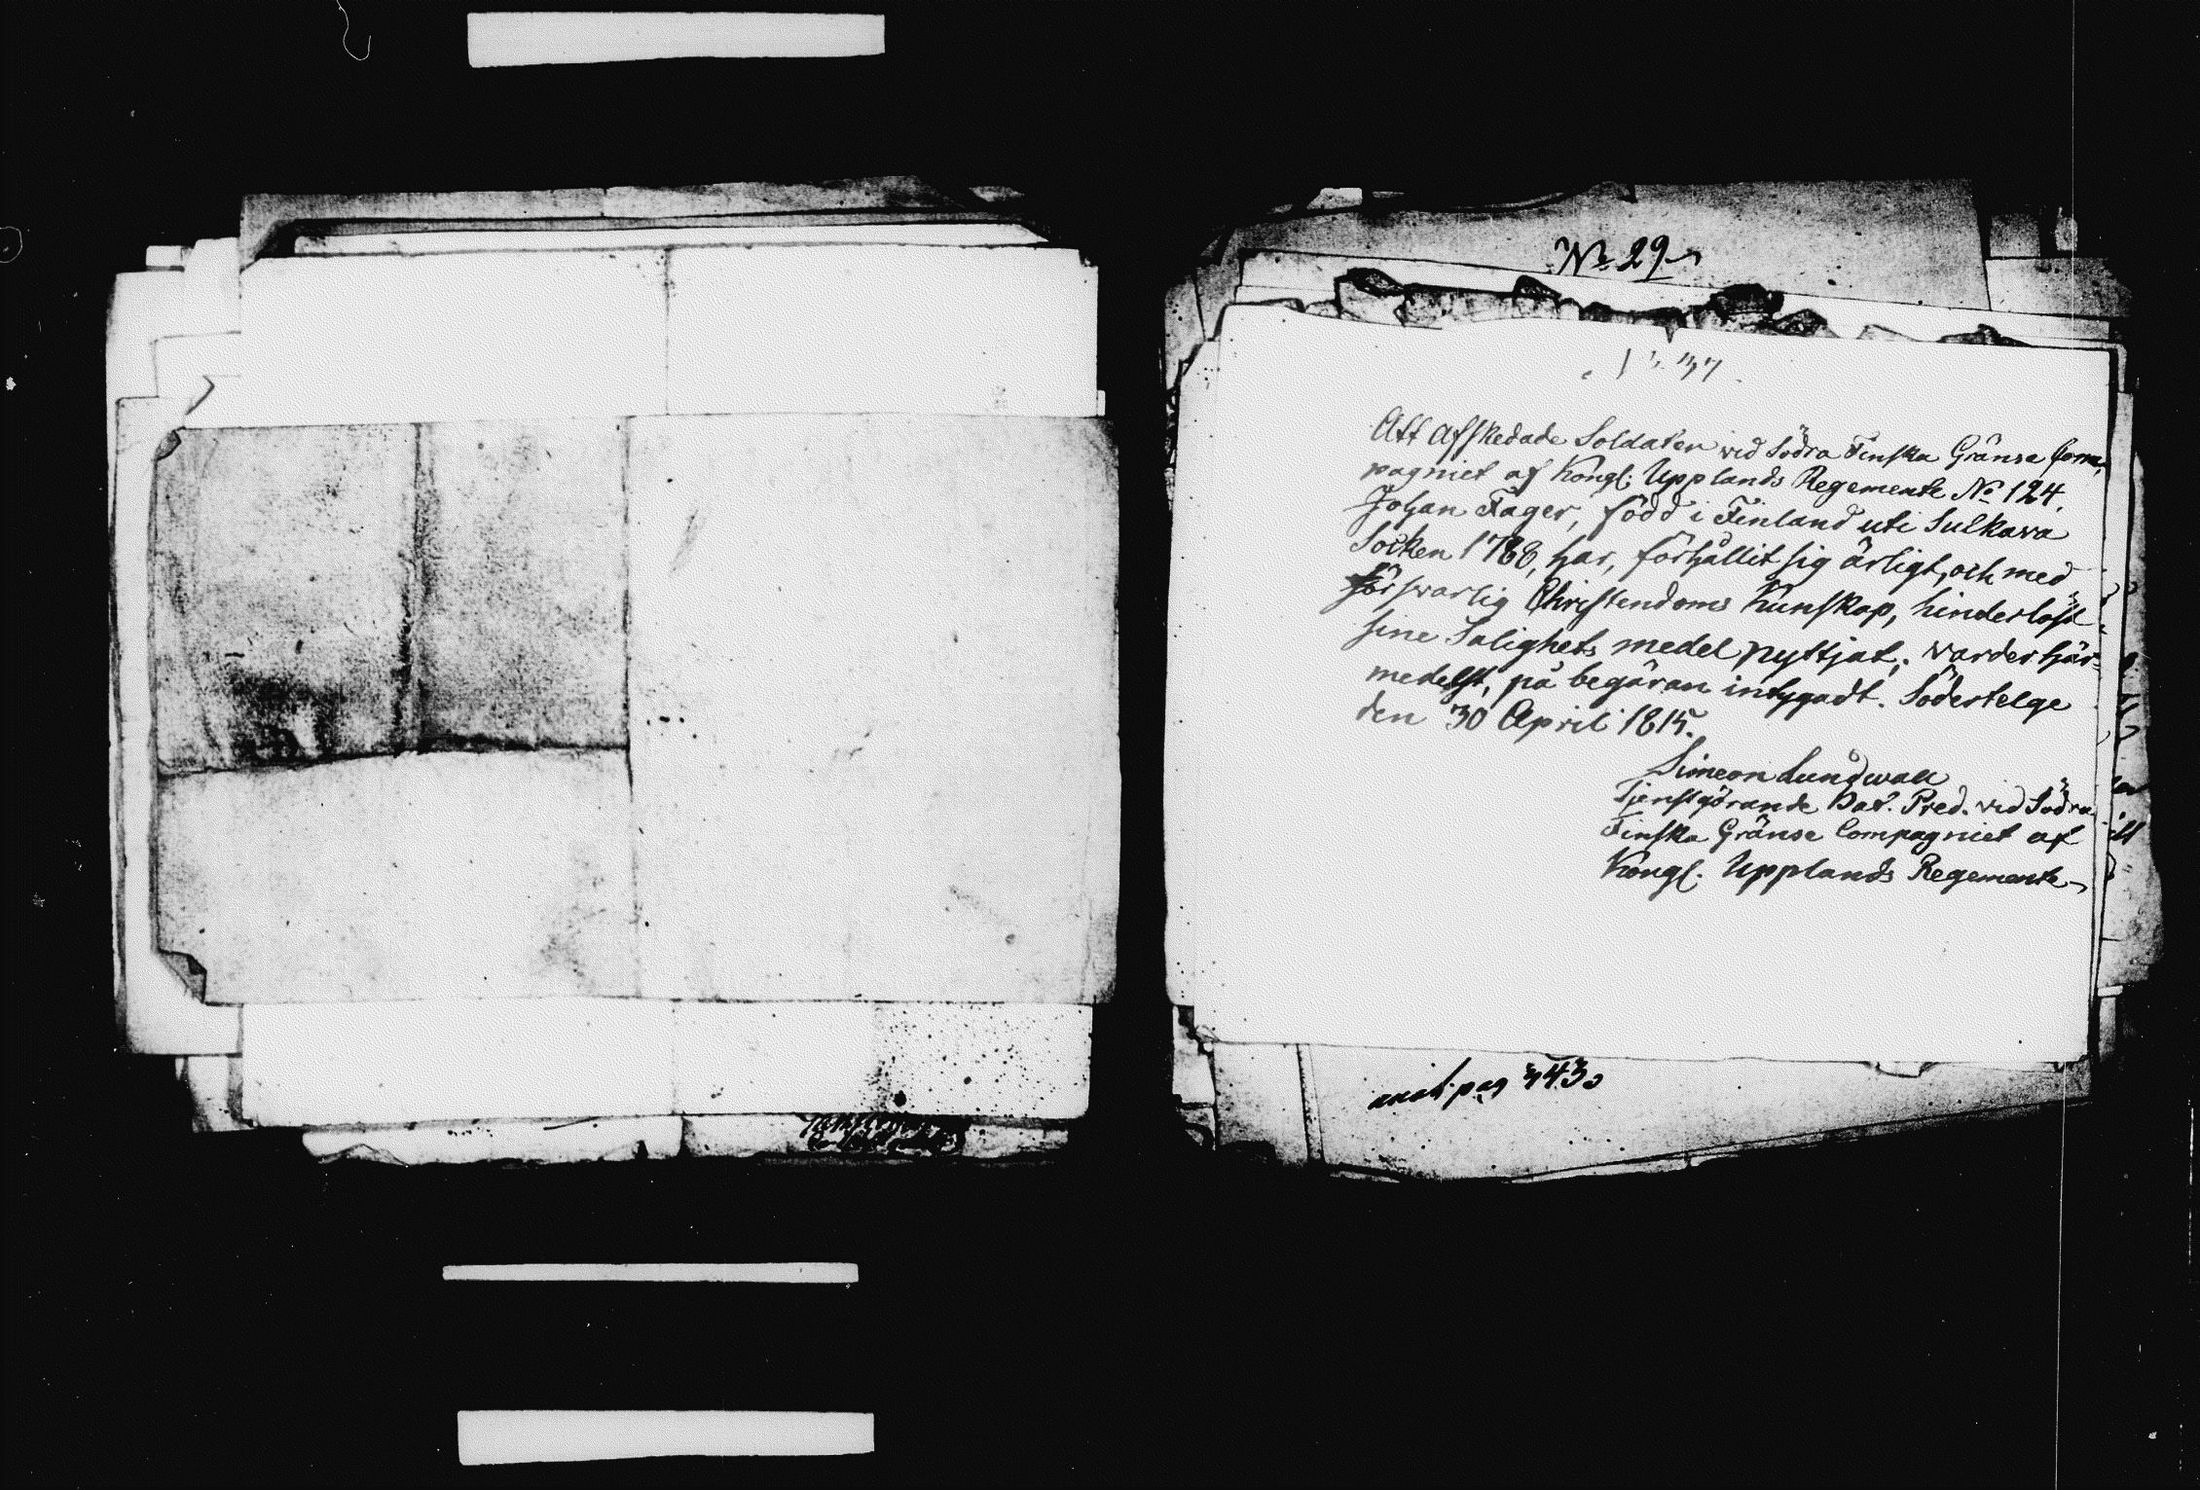 No 29
37
Att Afskedade Soldaten vid Södra Finska Gränse Com„
pagniet af Kongl. Upplands Regemente No 124,
Johan Fager, född i Finland uti Sulkava
Socken 1788, har, förhållit sig ärligt, och med
försvarlig Christendoms Kunskap, hinderlöst
sine Salighets medel nyttjat; varder här=
medelst, på begäran intygadt. Södertelge
den 30 April 1815.
Simeon Lundwall
Tjenstgörande Bat. Pred. vid Södra
Finska Gränse Compagniet af
Kongl. Upplands Regemente
pag 343